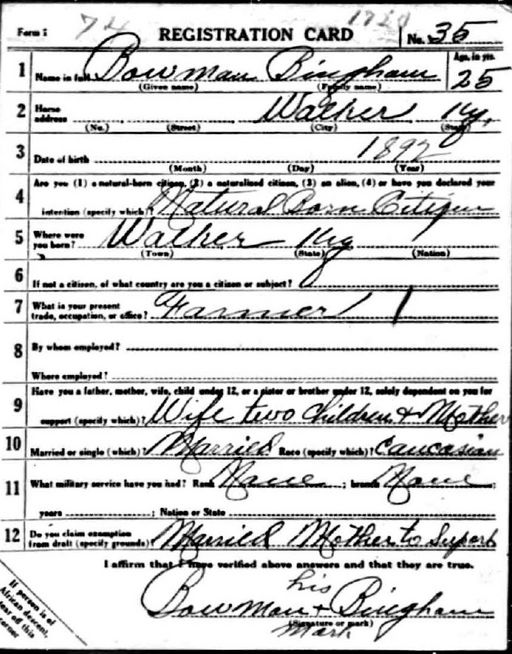 Form 1 74 1728
REGISTRATION CARD No. 35
1 Name in full Bowman Bingham Age, in yrs. 25
(Given name) (Family name)
2 Home address Walker Ky,
(No.) (Street) (City) (State)
3 Date of birth 1892
(Month) (Day) (Year)
4 Are you (1) a natural-born citizen, (2) a naturalized citizen, (3) an alien, (4) or have you declared your
intention (specify which)? Natural Born Citizen
5 Where were you born? Walker Ky
(Town) (State) (Nation)
6 If not a citizen, of what country are you a citizen or subject?
7 What is your present trade, occupation, or office? Farmer
8 By whom employed?
Where employed?
9 Have you a father, mother, wife, child under 12, or a sister or brother under 12, solely dependent on you for
support (specify which)? Wife two children & Mother
10 Married or single (which)? Married Race (specify which)? Caucasian
11 What military service have you had? Rank None ; branch None ;
years ; Nation or State
12 Do you claim exemption from draft (specify grounds)? Married Mother to Suport
I affirm that I have verified above answers and that they are true.
his
Bowman + Bingham
(Signature or mark)
Mark
If person is of
African descent,
tear off this
corner